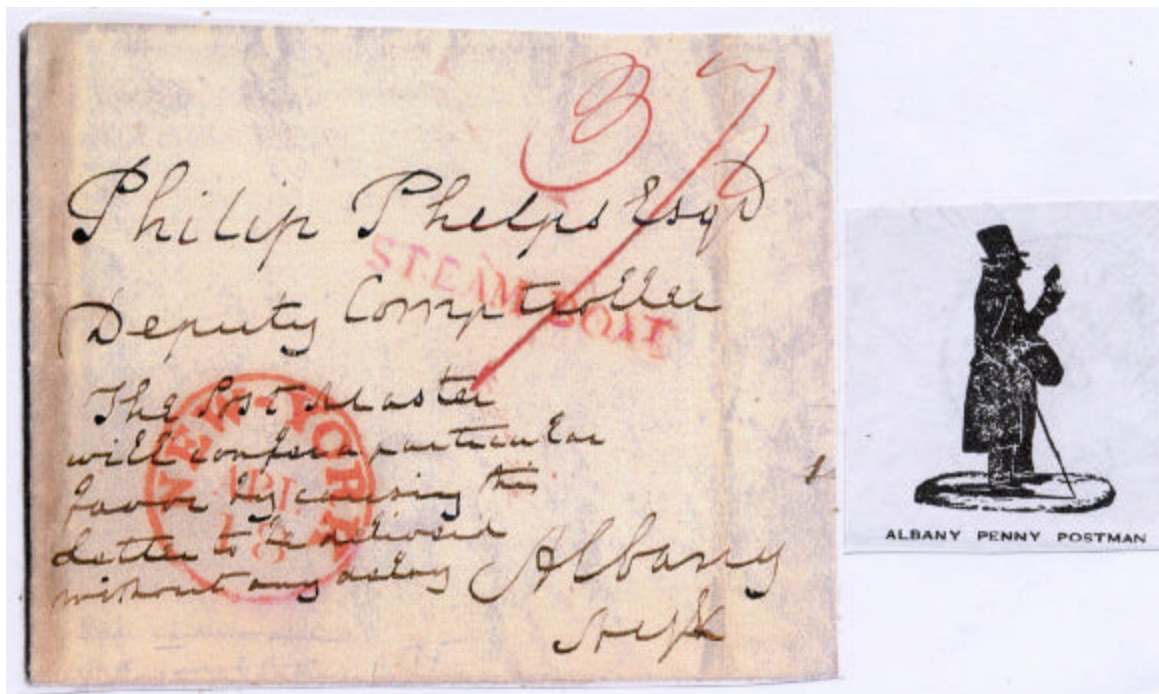 37½
Philip Phelps Esqr
STEAM-BOAT
Deputy Comptroller
The Post Master
will confer a particular
favor by causing this
letter to be delivered
without any delay
NEW-YORK
18
Albany
ALBANY PENNY POSTMAN